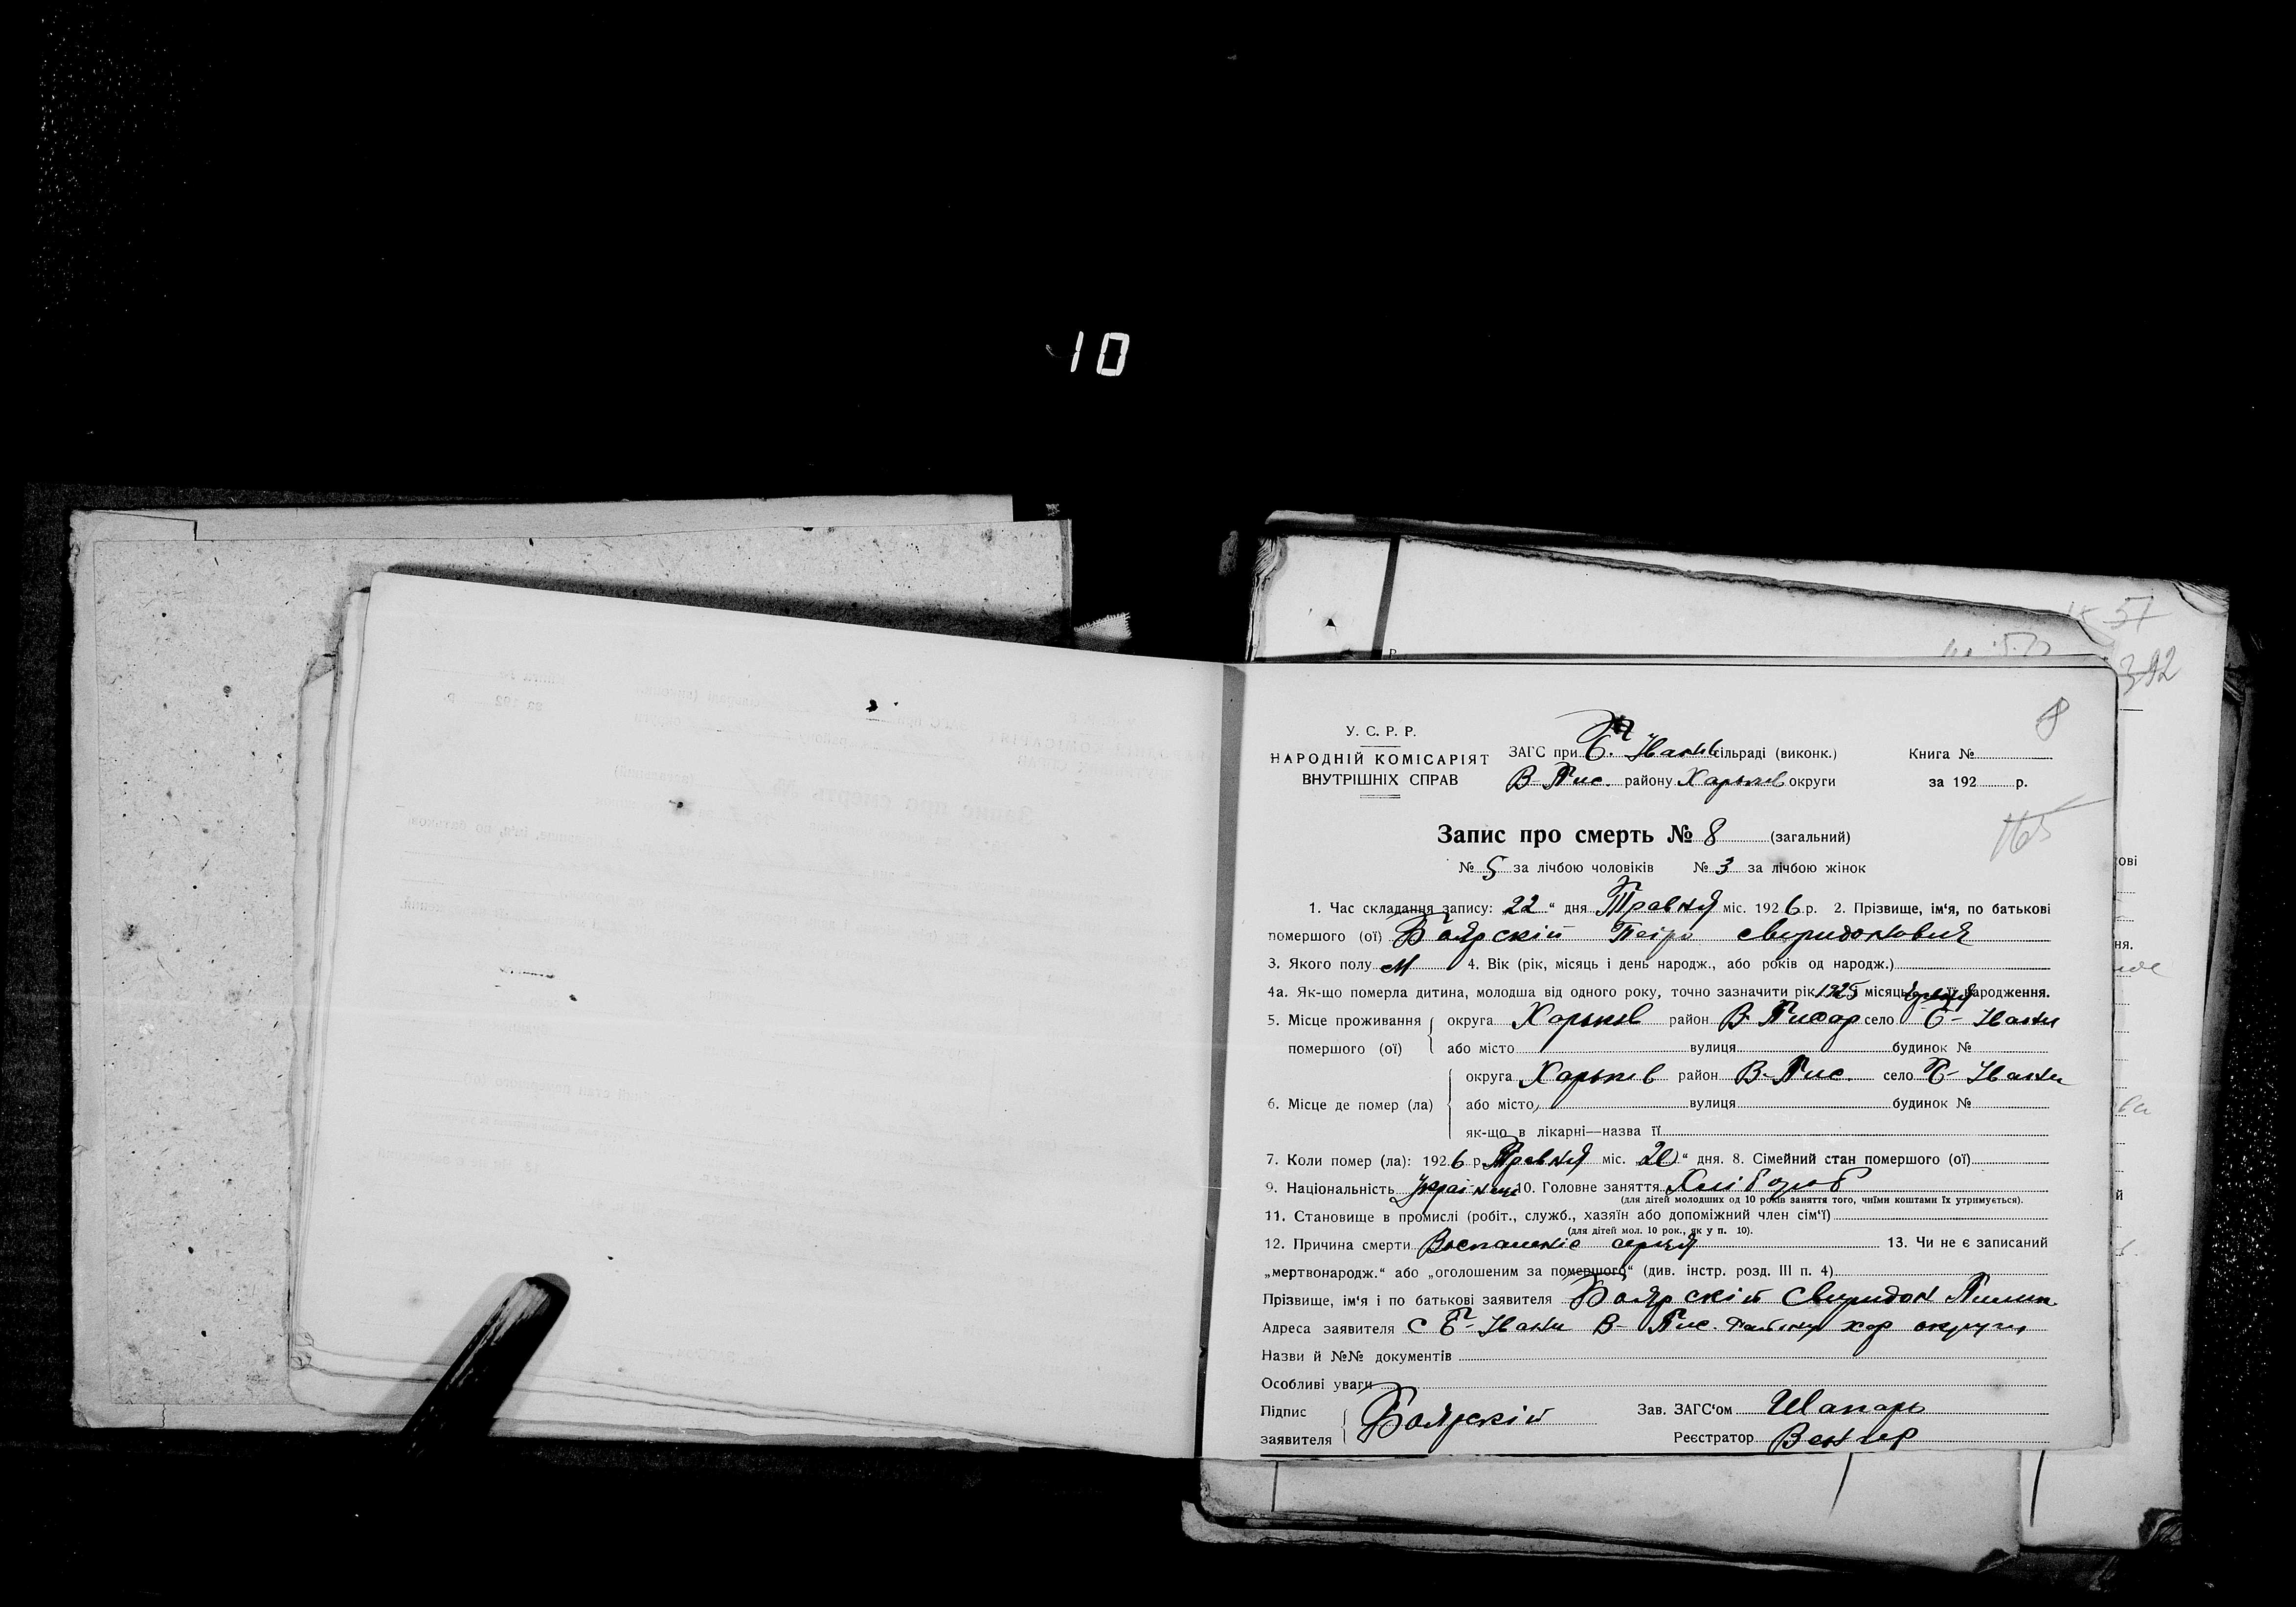 10
57
392
8
У. С. Р. Р.
НАРОДНІЙ КОМІСАРІЯТ
ВНУТРІШНІХ СПРАВ
ЗАГС при Б. Іванів сільраді (виконк.)
В-Пис. району Харьків округи
Книга №
за 192 р.
165
Запис про смерть № 8 (загальний)
№ 5 за лічбою чоловіків № 3 за лічбою жінок
1. Час складання запису: 22 " дня Травня міс. 1926 р. 2. Прізвище, ім'я, по батькові
помершого (ої) Боярскій Петро Свиридоновия
3. Якого полу М 4. Вік (рік, місяць і день народж., або років од народж.)
4а. Як-що померла дитина, молодша від одного року, точно зазначити рік 1925 місяць її народження.
5. Місце проживання помершого (ої) округа Харьків район В-Писар село Б- Івани
або місто вулиця будинок №
6. Місце де помер (ла) округа Харьків район В-Пис. село Б- Івани
або місто вулиця будинок №
як-що в лікарні—назва її
7. Коли помер (ла): 1926 р. Травня міс. 20 " дня. 8. Сімейний стан помершого (ої)
9. Національність Українец 10. Головне заняття Хлібороб
(для дітей молодших од 10 років заняття того, чиїми коштами їх утримується).
11. Становище в промислі (робіт., служб., хазяїн або допоміжний член сім'ї)
(для дітей мол. 10 рок., як у п. 10).
12. Причина смерти Воспаленіе 13. Чи не є записаний
„мертвонародж." або „оголошеним за помершого" (див. інстр. розд. III п. 4)
Прізвище, ім'я і по батькові заявителя Боярскій Свиридон Пилип
Адреса заявителя С Б- Івани В- Пис. Району хар округи
Назви й №№ документів
Особливі уваги
Підпис заявителя Боярскій
Зав. ЗАГС'ом Шапарь
Реєстратор Венгер